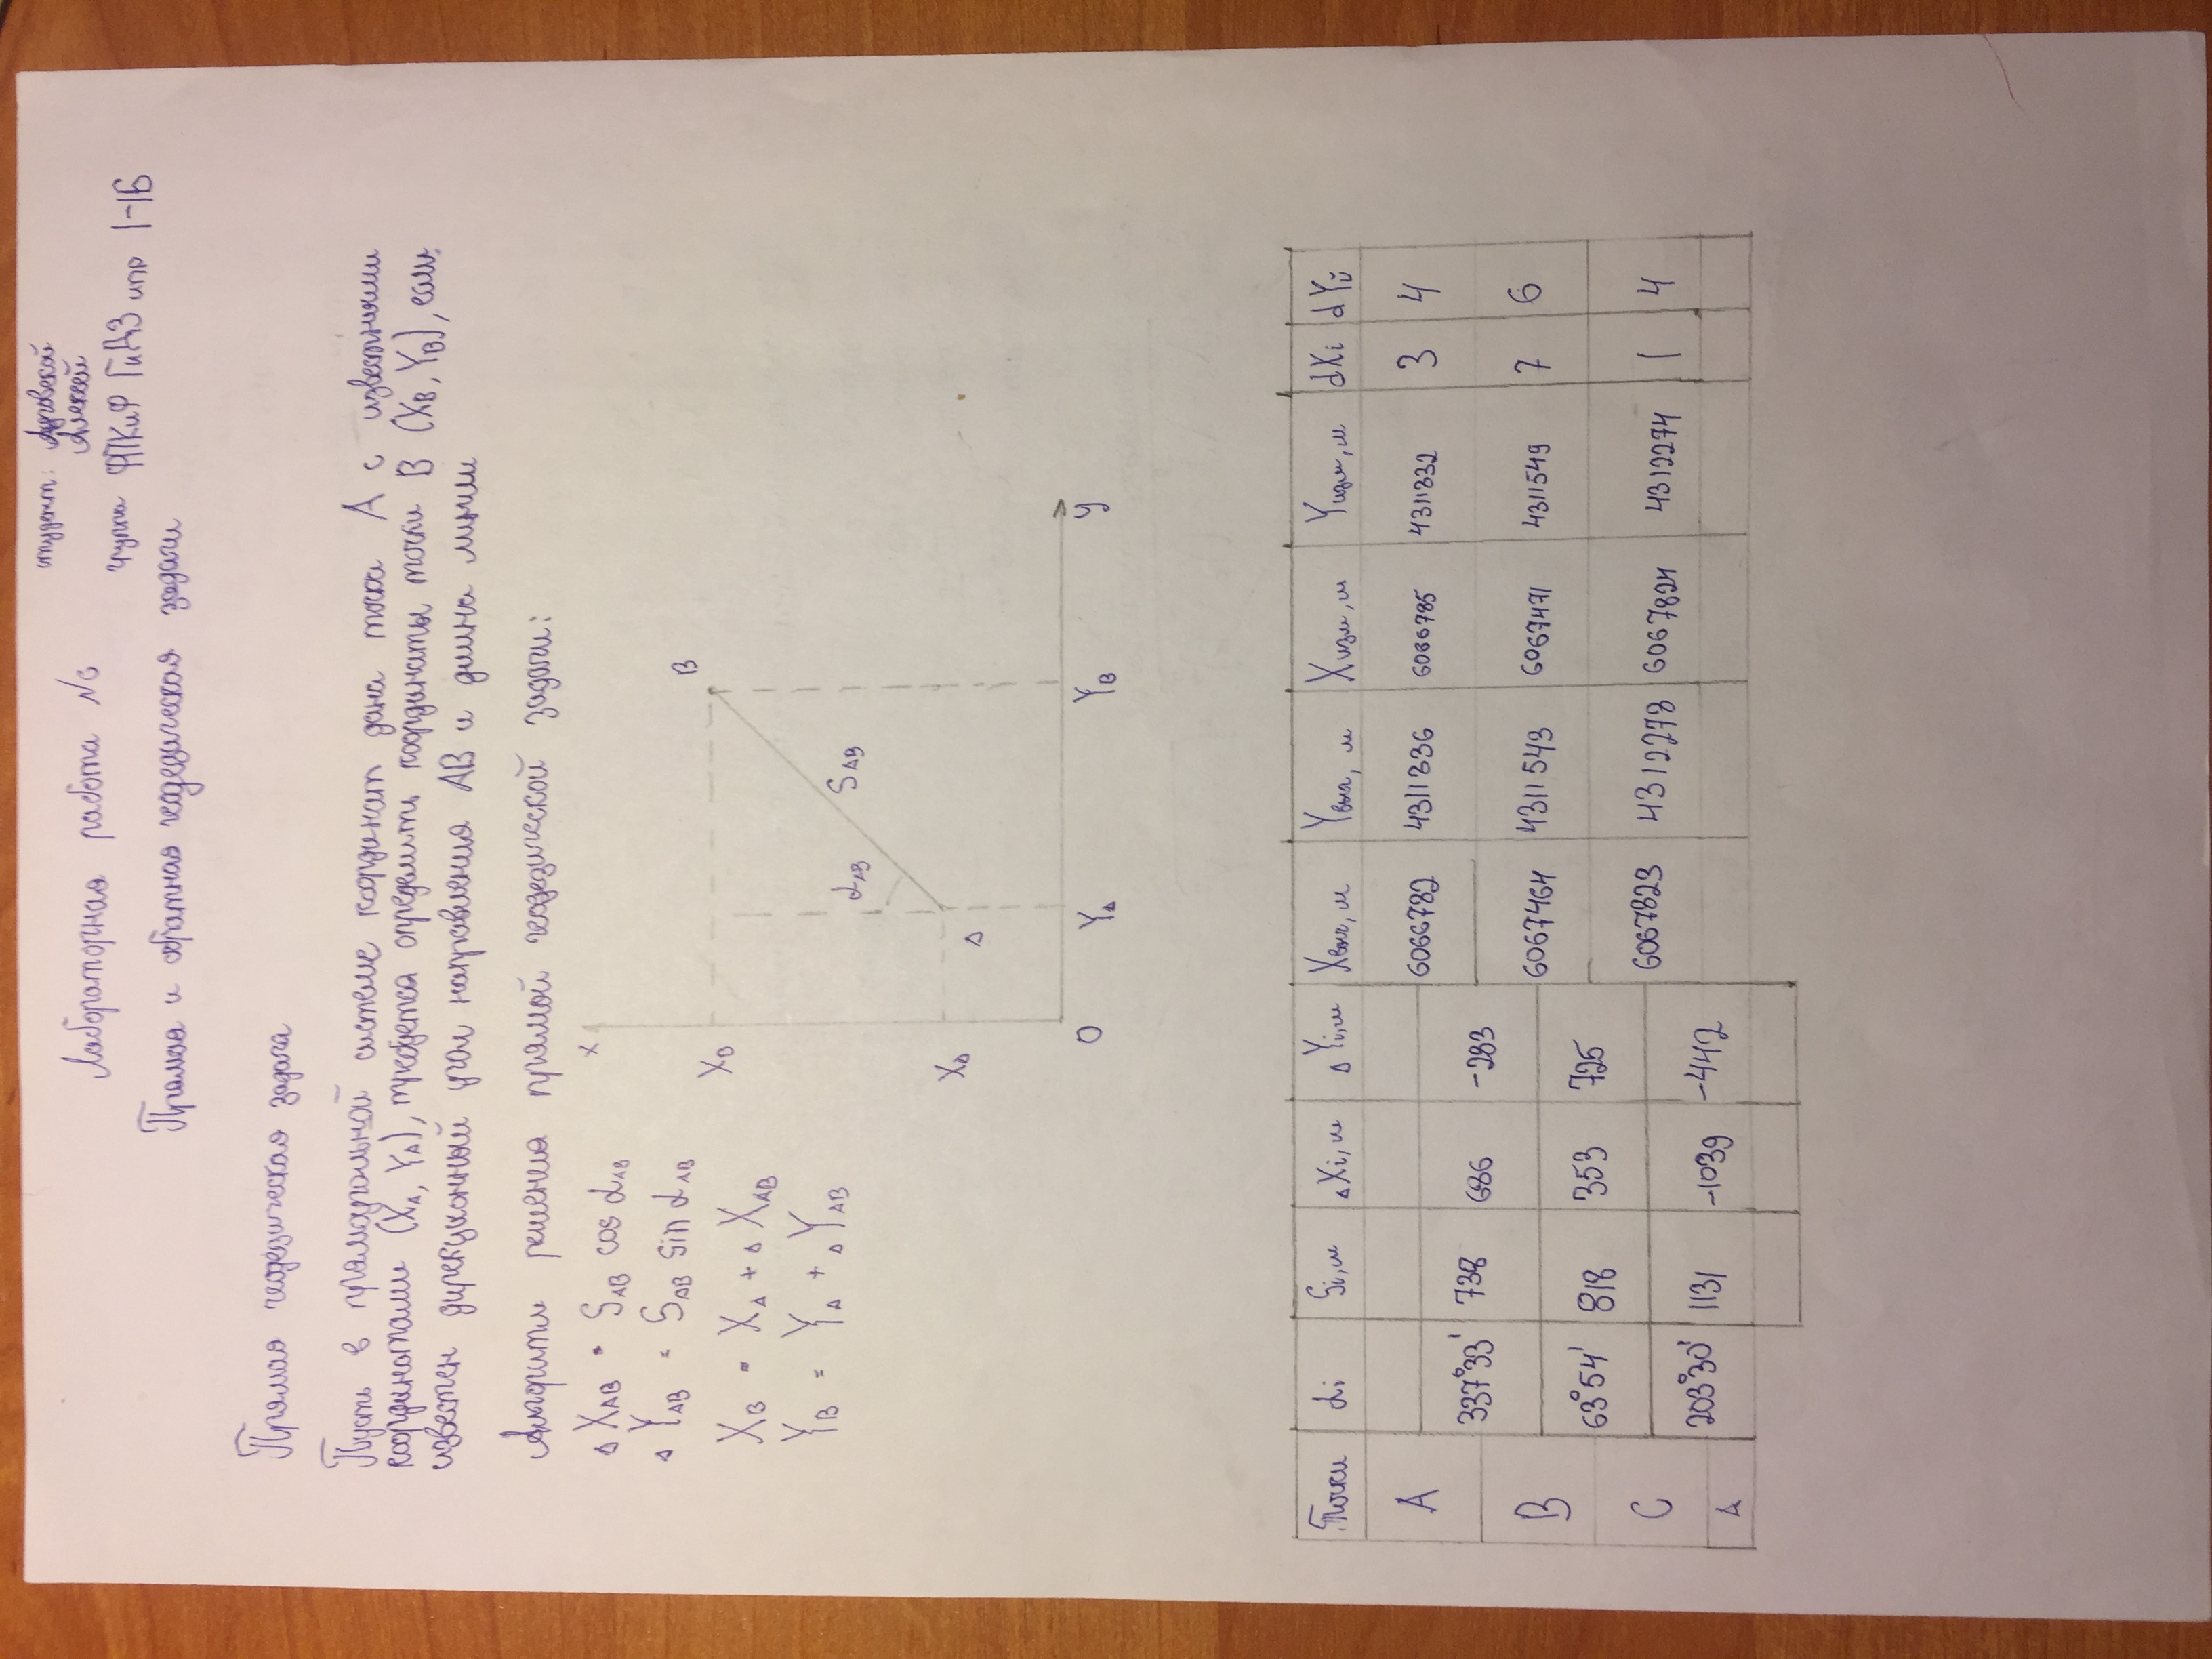 студент: Луговской
Алексей
Лабораторная работа №6
группа ФПКиФ ГиДЗ ипр 1-1Б
Прямая и обратная геодезическая задачи
Прямая геодезическая задача
Пусть в прямоугольной системе координат дана точка A с известными
координатами (XA, YA), требуется определить координаты точки B (XB, YB), если
известен дирекционный угол направления AB и длина линии
Алгоритм решения прямой геодезической задачи:
ΔXAB = SAB cos αAB
ΔYAB = SAB sin αAB
XB = XA + ΔXAB
YB = YA + ΔYAB
x
B
XB
αAB SAB
XA
A
O YA YB y
Точки αi Si, м ΔXi, м ΔYi, м Xвыч, м Yвыч, м Xизм, м Yизм, м dXi dYi
A 6066782 4311836 6066785 4311832 3 4
337°33' 738 686 -283
B 6067464 4311543 6067471 4311549 7 6
63°54' 818 353 725
C 6067823 4312278 6067824 4312274 1 4
203°30' 1131 -1039 -442
A